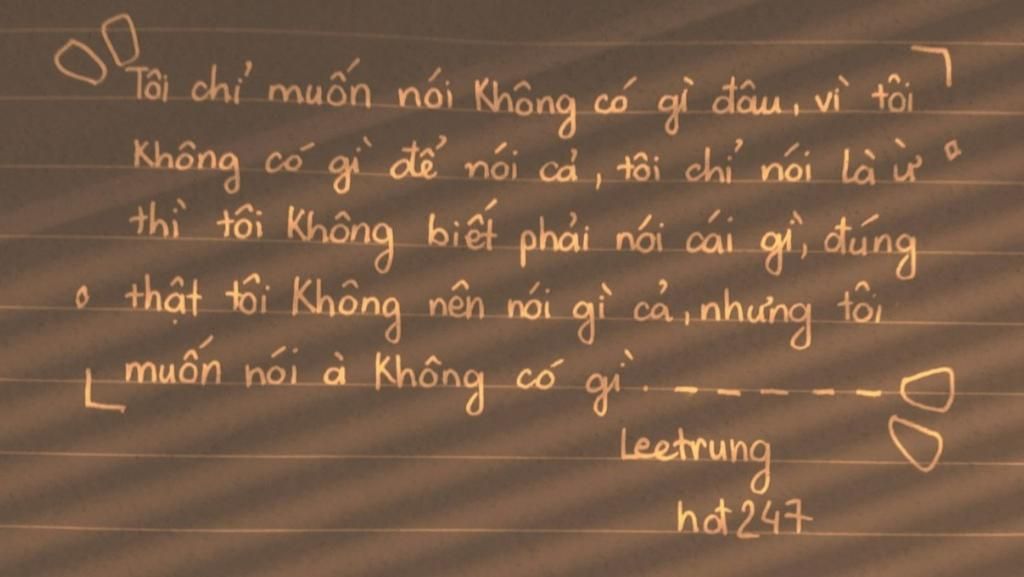 Tôi chỉ muốn nói Không có gì đâu, vì tôi
Không có gì để nói cả, tôi chỉ nói là ừ
thì tôi Không biết phải nói cái gì, đúng
thật tôi Không nên nói gì cả, nhưng tôi
muốn nói à Không có gì.
Leetrung
hot247